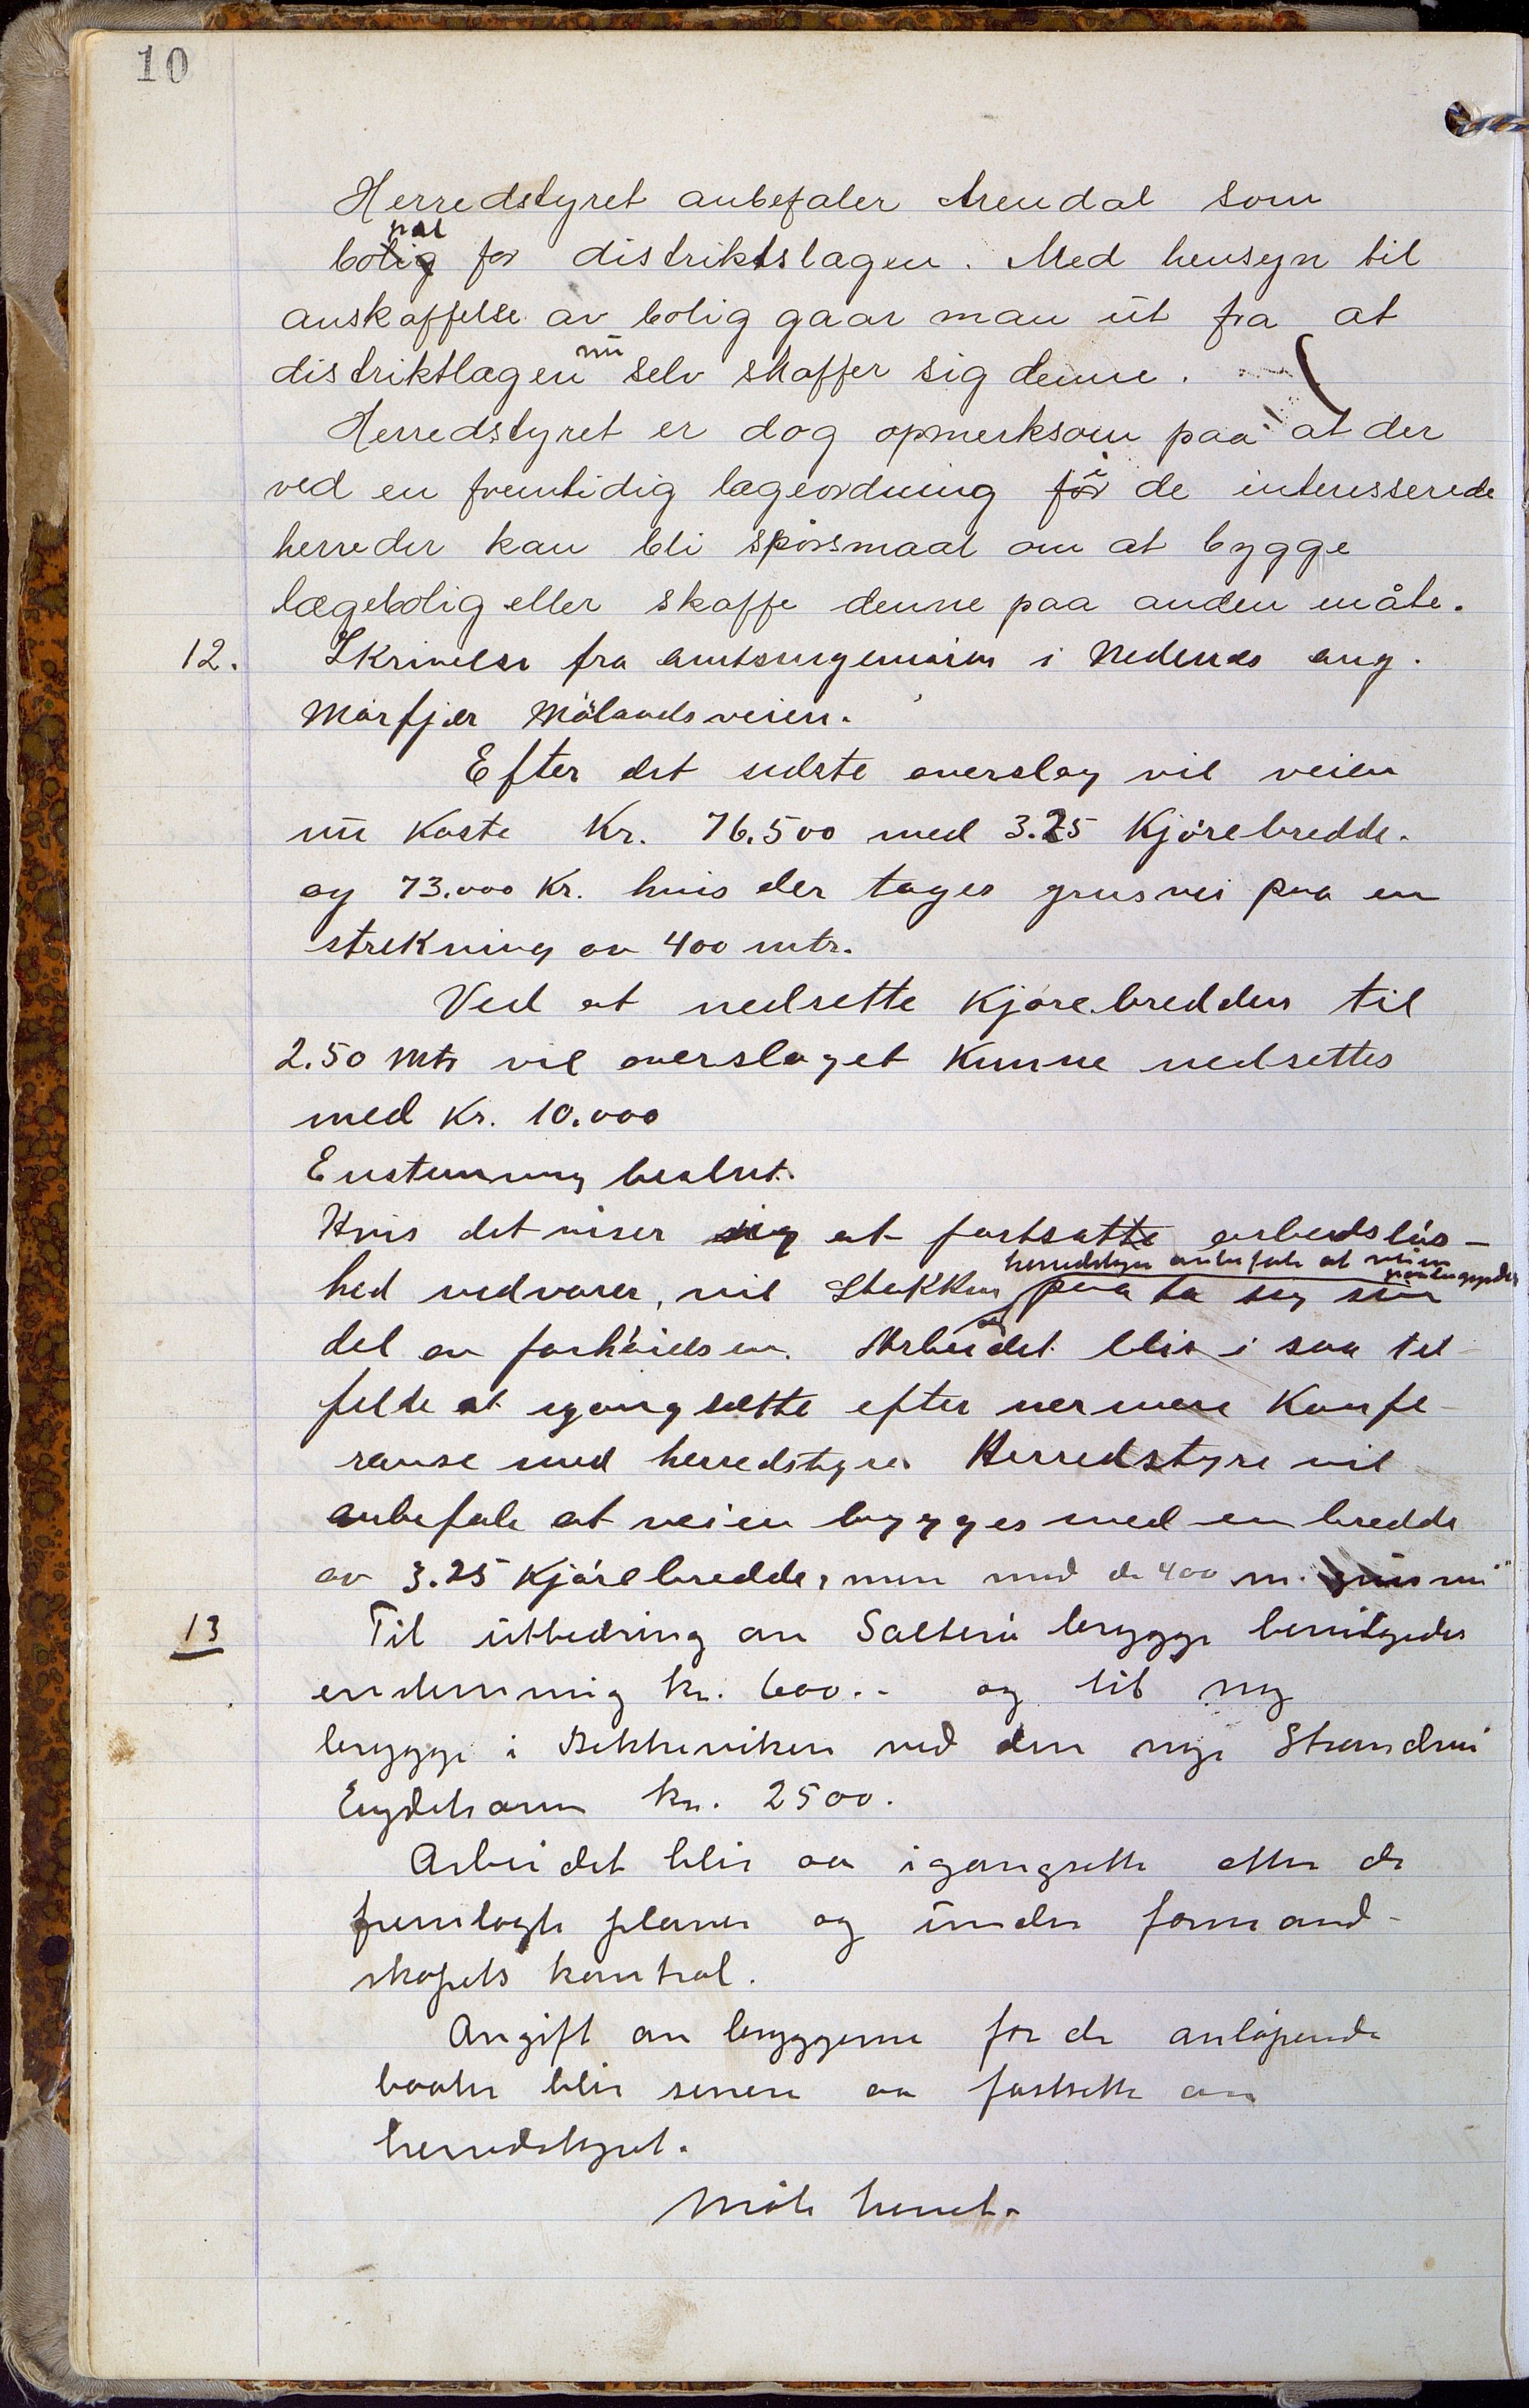 10
Herredstyret anbefaler Arendal som
bopæl
bolig for distriktslægen. Med hensyn til
anskaffelse av bolig gaar man ut fra at
distriktlægen nu selv skaffer sig denne.
Herredstyret er dog opmerksom paa at der
ved en fremtidig lægeordning for i de interesserede
herreder kan bli spörsmaal om at bygge
lægebolig eller skaffe denne paa anden måte.
12. Skrivelse fra amtsingeniören i Nedenes ang.
Mörfjær Mölandsveien.
Efter det sidste overslag vil veien
nu koste Kr. 76.500 med 3.25 Kjörebredde.
og 73.000 Kr. hvis der tages grusvei paa en
strekning av 400 mtr.
Ved at nedsette Kjörebredden til
2.50 Mtr vil overslaget Kunne nedsettes
med Kr. 10.000
Enstemmig beslut.
Hvis det viser sig at fortsatte arbeidslös-
herredstyre anbefale at veien
hed vedvarer, vil Stokken paa ta sig sin
del av Arbeidet blir i saa til-
felde at igangsætte efter nermere Konfe-
ranse med herredstyre. Herredstyre vil
anbefale at veien bygges med en bredde
av 3.25 Kjörebredde, men med de 400 m. grusvei
13 Til utbedring av Salterö brygge bevilgedes
enstemmig kr. 600.- og til ny
brygge i Bekkeviken ved den nye Strandvei
Eydehavn kr. 2500.
Arbeidet blir aa igangsette etter de
fremlagte planer og under formand-
skapets kontrol.
Avgift av bryggerne for de anlöpende
baater blir senere aa fastsette av
herredstyret.
Möte hevet.